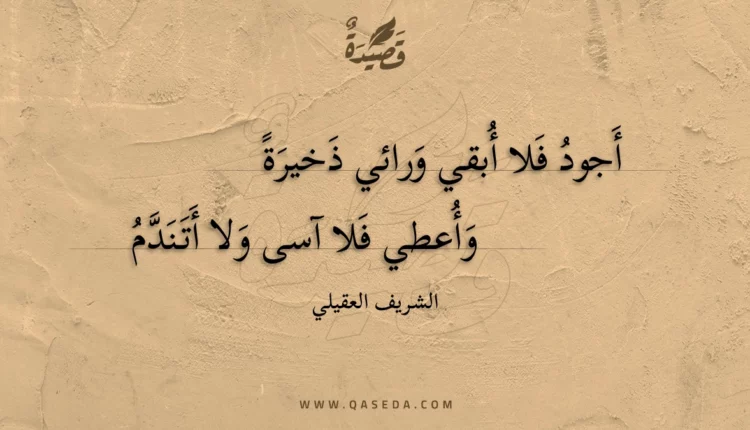 قَصِيْدَةٌ
أَجودُ فَلا أُبقي وَرائي ذَخيرَةً
وَأُعطي فَلا آسى وَلا أَتَنَدَّمُ
الشريف العقيلي
WWW.QASEDA.COM